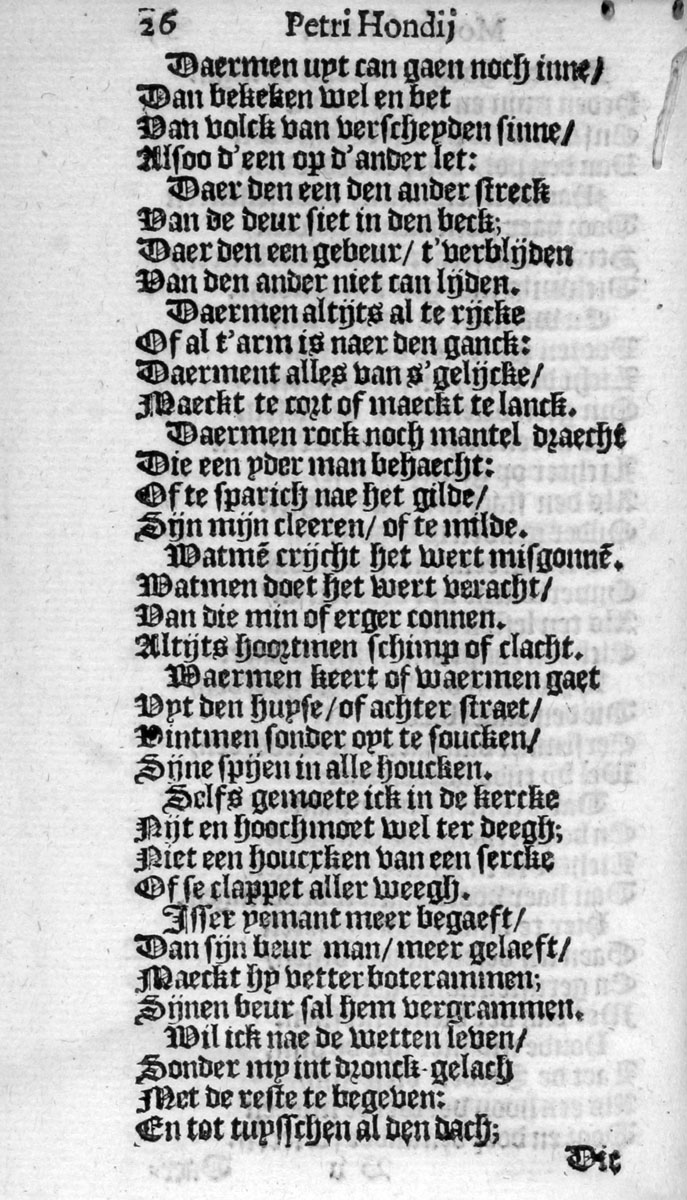 26 Petri Hondij
Daermen uyt can gaen noch inne/
Dan bekeken wel en bet
Van volck van verscheyden sinne/
Alsoo d'een op d'ander let:
Daer den een den ander streck
Van de deur siet in den beck;
Daer den een gebeur/ t'verblijden
Van den ander niet can lijden.
Daermen altijts al te rijcke
Of al t'arm is naer den ganck:
Daerment alles van s'gelijcke/
Maeckt te cort of maeckt te lanck.
Daermen rock noch mantel draecht
Die een yder man behaecht:
Of te sparich nae het gilde/
Sijn mijn cleeren/ of te milde.
Watmē crijcht het wert misgonnē.
Watmen doet het wert veracht/
Van die min of erger connen.
Altijts hoortmen schimp of clacht.
Waermen keert of waermen gaet
Uyt den huyse/of achter straet/
Vintmen sonder oyt te soucken/
Sijne spijen in alle houcken.
Selfs gemoete ick in de kercke
Nijt en hoochmoet wel ter deegh;
Niet een houcxken van een sercke
Of se clappet aller weegh.
Isser yemant meer begaeft/
Dan sijn beur man/ meer gelaeft/
Maeckt hy vetter boterammen;
Sijnen beur sal hem vergrammen.
Wil ick nae de wetten leven/
Sonder my int dronck-gelach
Met de reste te begeven:
En tot tuysschen al den dach;
Die